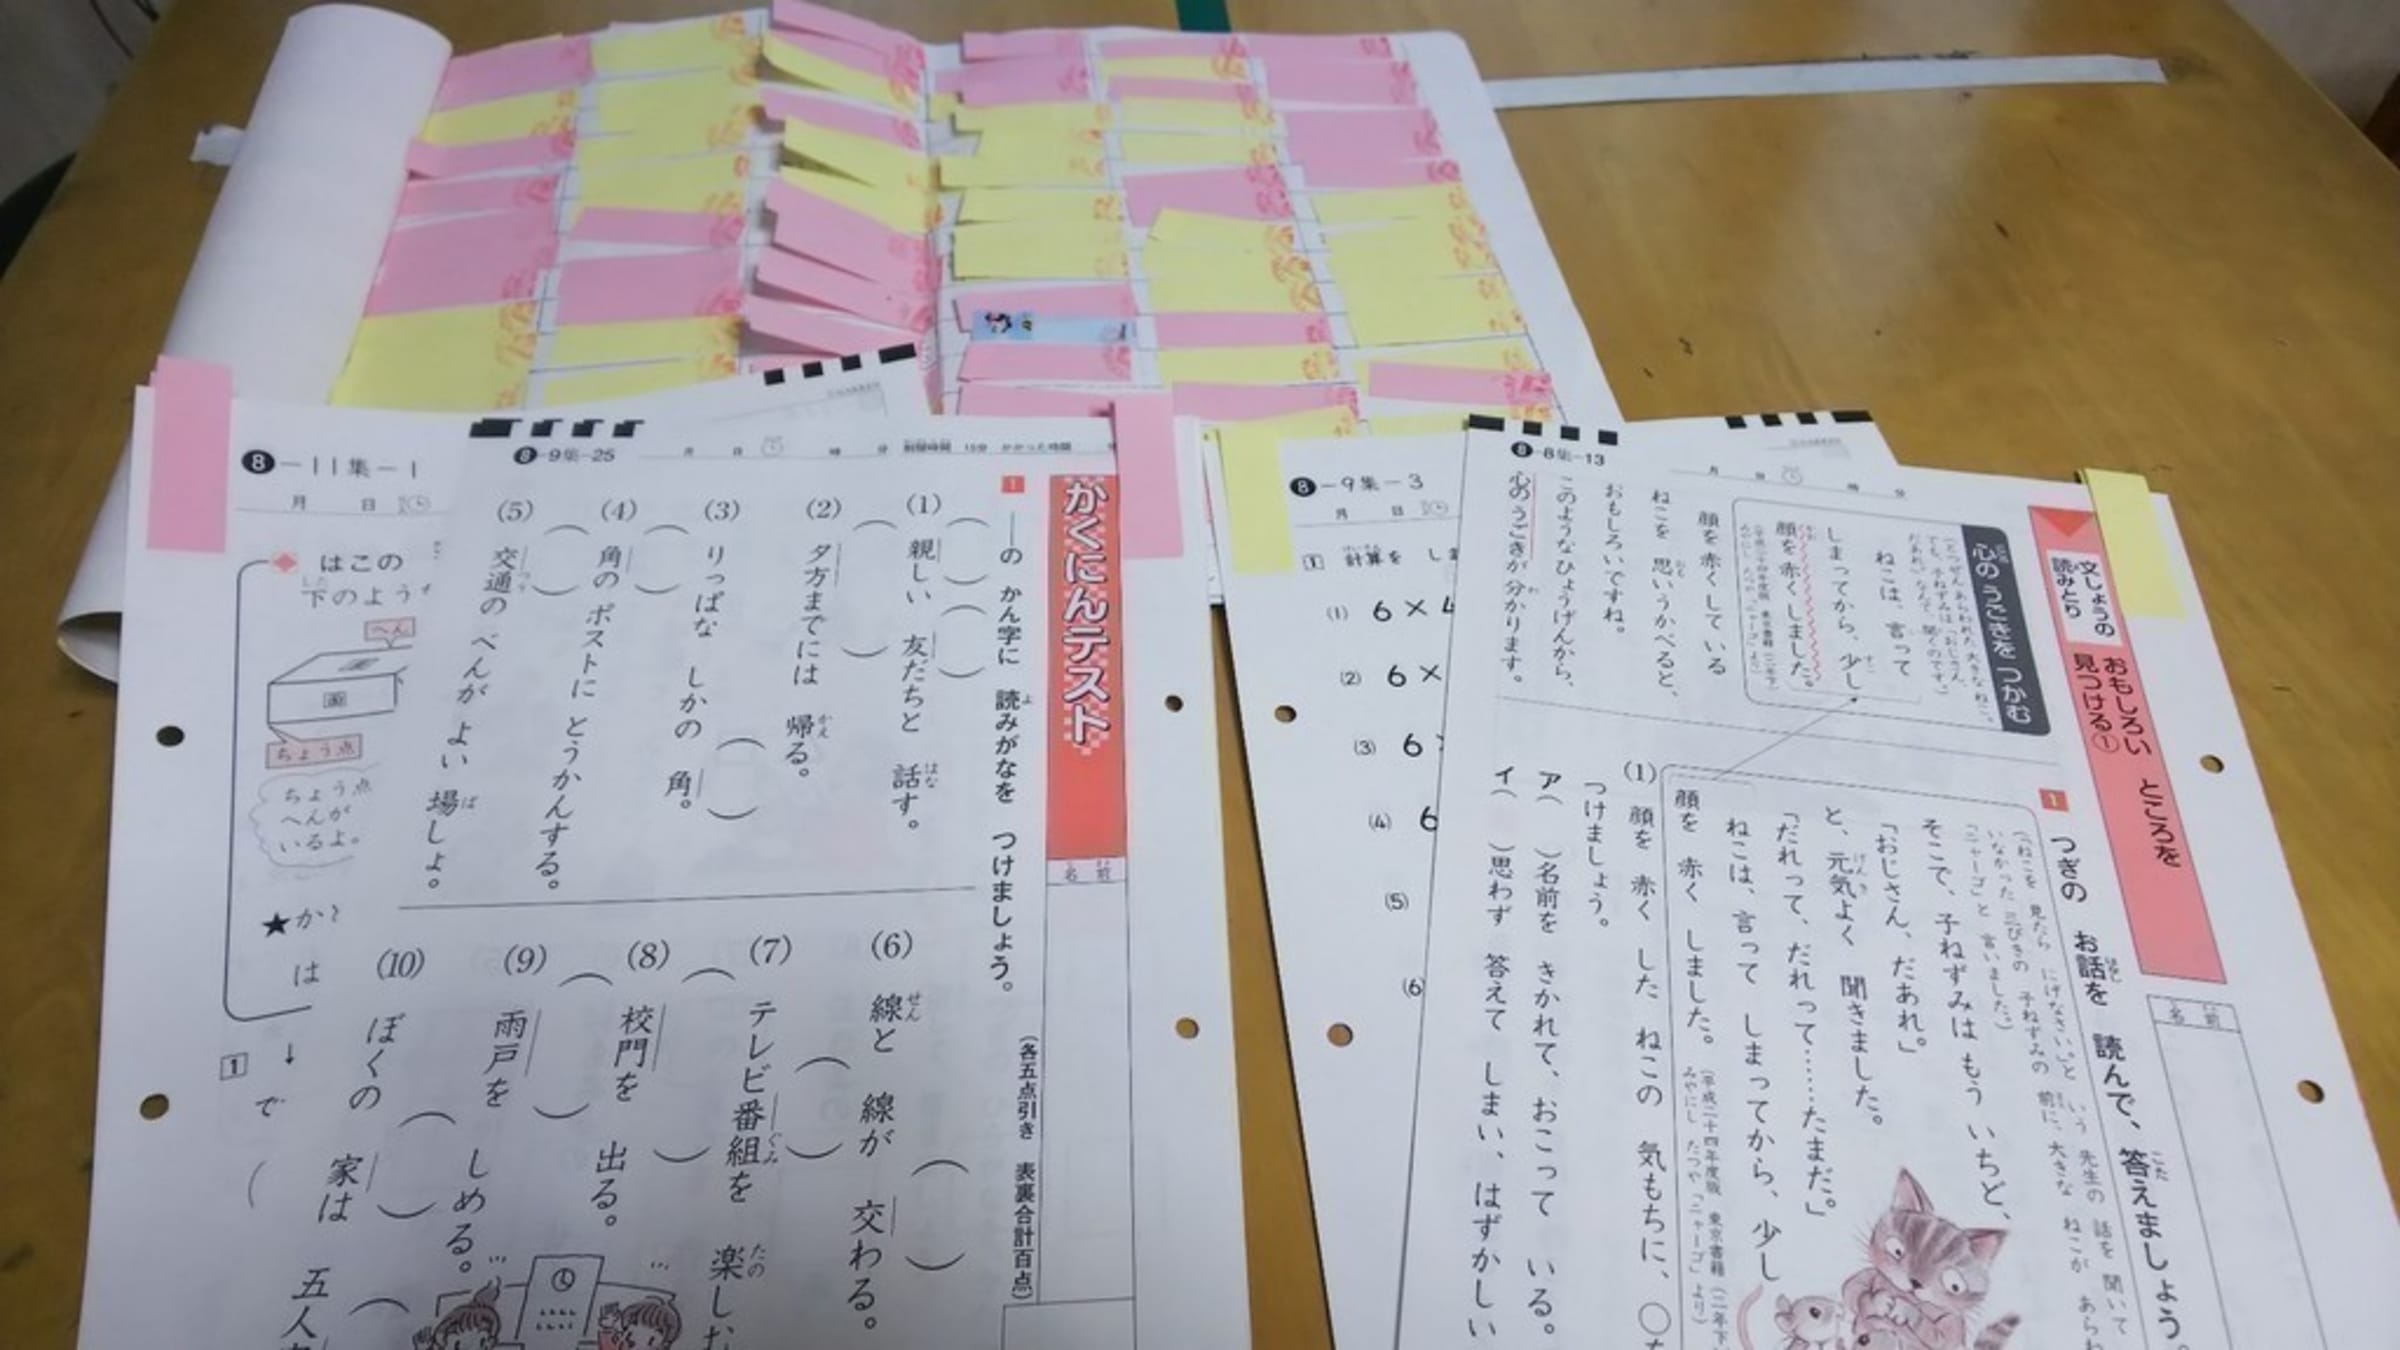 8-11集-1
月 日
はこの
下のようす
へん
面
ちょう点
ちょう点
へんが
いるよ。
★か
は
1
↓
で
8-9集-25
月 日 時 分 制限時間 15分 かかった時間
かくにんテスト
名前
1 ――の かん字に 読みがなを つけましょう。
(各五点引き 表裏合計百点)
(1) 親しい 友だちと 話す。
(2) 夕方までには 帰る。
(3) りっぱな しかの 角。
(4) 角の ポストに とうかんする。
(5) 交通の べんが よい 場しょ。
(6) 線と 線が 交わる。
(7) テレビ番組を 楽しむ
(8) 校門を 出る。
(9) 雨戸を しめる。
(10) ぼくの 家は 五人
8-9集-3
月 日
1 計算を しま
(1) 6×4
(2) 6×
(3) 6
(4) 6
(5)
(6)
8-8集-13
月 日 時 分
文しょうの
読みとり
おもしろい ところを
見つける①
名前
心の うごきを つかむ
ねこは、言って
しまってから、少し
顔を 赤く しました。
顔を赤くしている
ねこを 思いうかべると、
おもしろいですね。
このようなひょうげんから、
心のうごきが分かります。
1 つぎの お話を 読んで、答えましょう。
(「ねこを 見たら にげなさい。」と いう 先生の 話を 聞いて
いなかった 三びきの 子ねずみの 前に、大きな ねこが あらわ
「ニャーゴ」と 言いました。)
そこで、子ねずみは もう いちど、
「おじさん、だあれ。」
と、元気よく 聞きました。
「だれって、だれって……たまだ。」
ねこは、言って しまってから、少し
顔を 赤く しました。
(平成二十四年度版 東京書籍(二年下)
みやにし たつや「ニャーゴ」より)
(1) 顔を 赤く した ねこの 気もちに、○を
つけましょう。
ア( )名前を きかれて、おこって いる。
イ( )思わず 答えて しまい、はずかしい